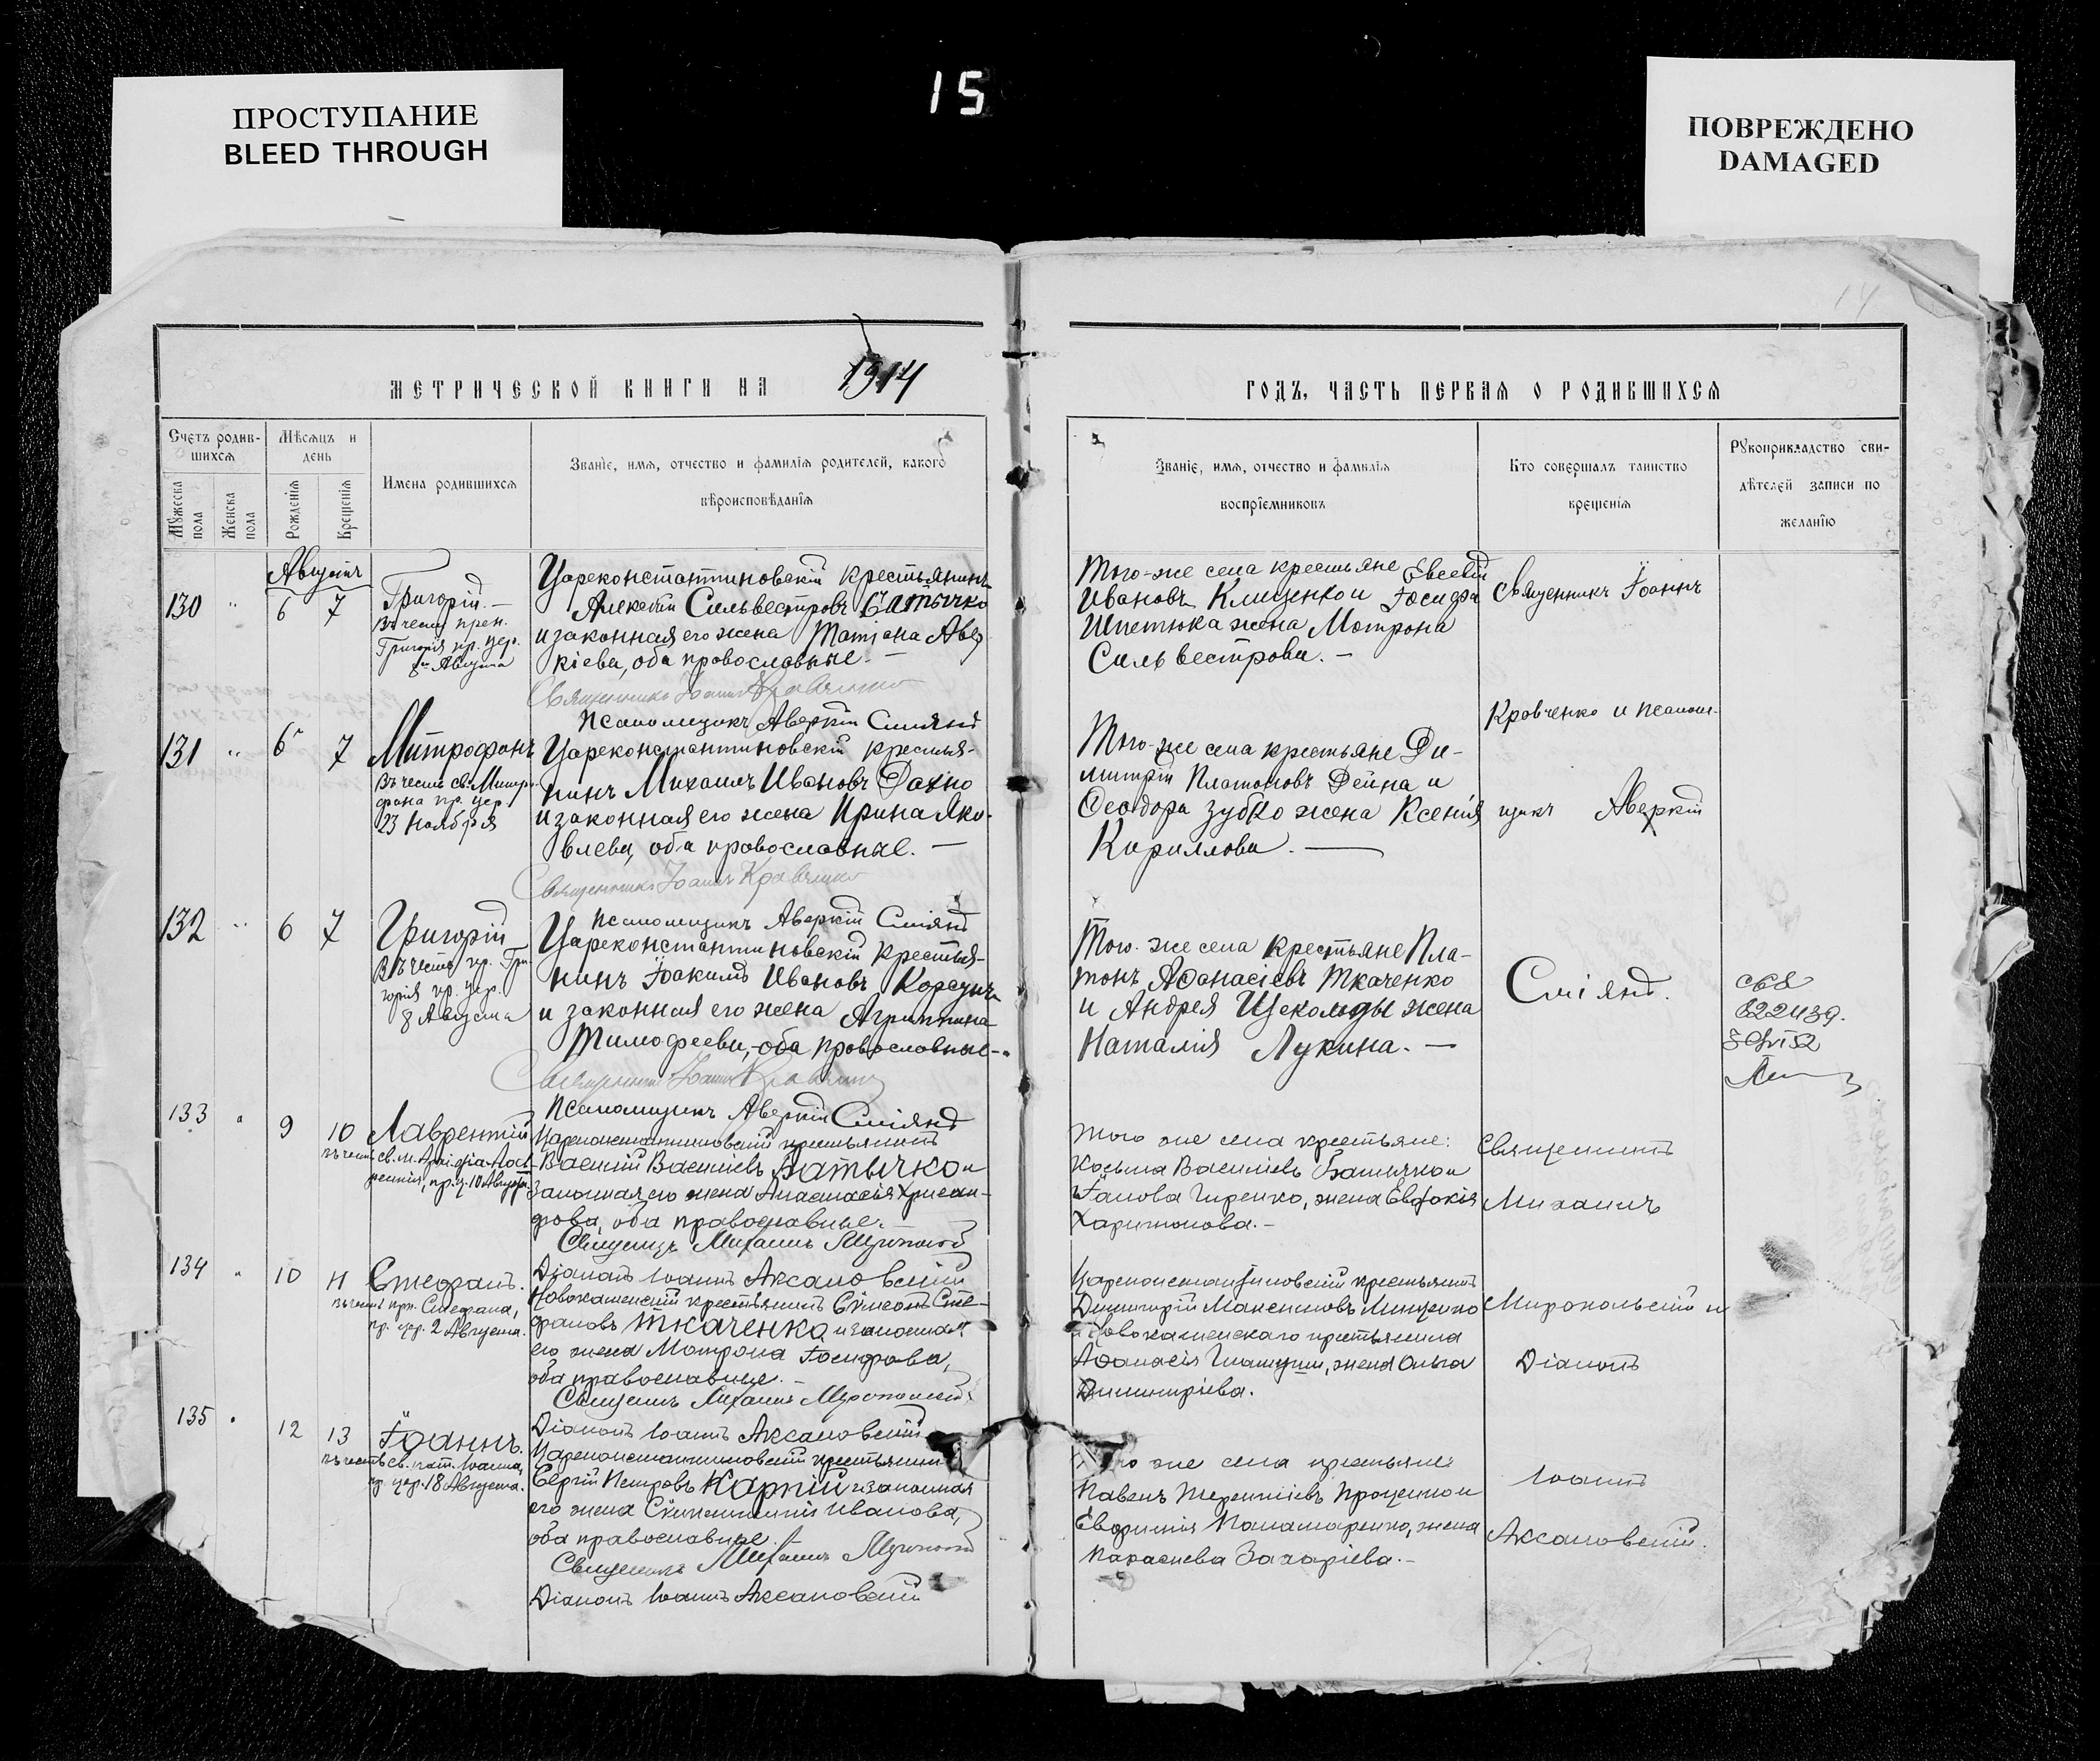 15
ПРОСТУПАНИЕ
BLEED THROUGH
ПОВРЕЖДЕНО
DAMAGED
МЕТРИЧЕСКОЙ КНИГИ НА 1914
ГОДЪ, ЧАСТЬ ПЕРВАЯ О РОДИВШИХСЯ
Счетъ родив-
шихся
Мужеска пола
Женска пола
Мѣсяцъ и
день
Рожденія
Крещенія
Имена родившихся
Званіе, имя, отчество и фамилія родителей, какого
вѣроисповѣданія
Званіе, имя, отчество и фамилія
воспріемниковъ
Кто совершалъ таинство
крещенія
Рукоприкладство сви-
дѣтелей записи по
желанію
Августъ
130 " 6 7
Григорій.—
Въ честь преп.
Григорія пр. цер.
8го Августа
Цареконстантиновскій крестьянинъ
Алексѣй Сильвестровъ Батычко
и законная его жена Татіана Авер
кіева, оба православные.—
Священникъ Іоаннъ Кравченко
Псаломщикъ Аверкій Сміянъ
Того-же села крестьяне Евсевій
Ивановъ Клищенко и Іосифа
Шпетюка жена Мотрона
Сильвестрова.—
Священникъ Іоаннъ
Кравченко и псалом-
131 " 6 7
Митрофанъ
Въ честь св. Митро-
фана пр. цер.
23 Ноября
Цареконстантиновскій крестья-
нинъ Михаилъ Ивановъ Дахно
и законная его жена Ирина Яко-
влева, оба православные.—
Священникъ Іоаннъ Кравченко
Псаломщикъ Аверкій Сміянъ
Того-же села крестьяне Ди-
митрій Платоновъ Дейна и
Ѳеодора Зубко жена Ксенія
Кириллова.—
щикъ Аверкій
132 " 6 7
Григорій
Въ честь пр. Гри-
горія пр. цер.
8 Августа
Цареконстантиновскій крестья-
нинъ Іоакимъ Ивановъ
и законная его жена Агриппина
Тимофеева, оба православные—
Священникъ Іоаннъ Кравченко
Псаломщикъ Аверкій Сміянъ
Того-же села крестьяне Пла-
тонъ Аѳанасіевъ Ткаченко
и Андрея Щеколоды жена
Наталія Лукина.—
Сміянъ.
133 " 9 10
Лаврентій
въ честь св. м. Архидіа. Лав-
рентія, пр. ц. 10 Августа.
Цареконстантиновскій крестьянинъ
Василій Василіевъ Батычко и
законная его жена Анастасія Хрисан-
фова, оба православные.—
Священникъ Михаилъ Миропольскій
Діаконъ Іоаннъ Аксановскій
Того же села крестьяне:
Косьма Василіевъ Батычко и
Іакова Гиренко, жена Евдокія
Харитонова.—
Священникъ
Михаилъ
134 " 10 11
Стефанъ.
въ честь прп. Стефана,
пр. цер. 2 Августа.
Новокаменскій крестьянинъ Сѵмеонъ Сте-
фановъ Ткаченко и законная
его жена Мотрона Іосифова,
оба православные.—
Священникъ Михаилъ Миропольскій
Діаконъ Іоаннъ Аксановскій
Цареконстантиновскій крестьянинъ
Димитрій Максимовъ Мищенко
и Новокаменскаго крестьянина
Аѳанасія жена Ольга
Димитріева.
Миропольскій и
Діаконъ
135 " 12 13
Іоаннъ.
въ честь св. пат. Іоанна,
пр. цер. 18 Августа.
Цареконстантиновскій крестьянинъ
Сергій Петровъ Карпій и законная
его жена Ивановa,
оба православные.
Священникъ Михаилъ Миропольскій
Діаконъ Іоаннъ Аксановскій
же села крестьяне:
Павелъ Терентіевъ Проценко и
Евфимія Паламаренко, жена
Параскева Захаріева.—
Іоаннъ
Аксановскій.